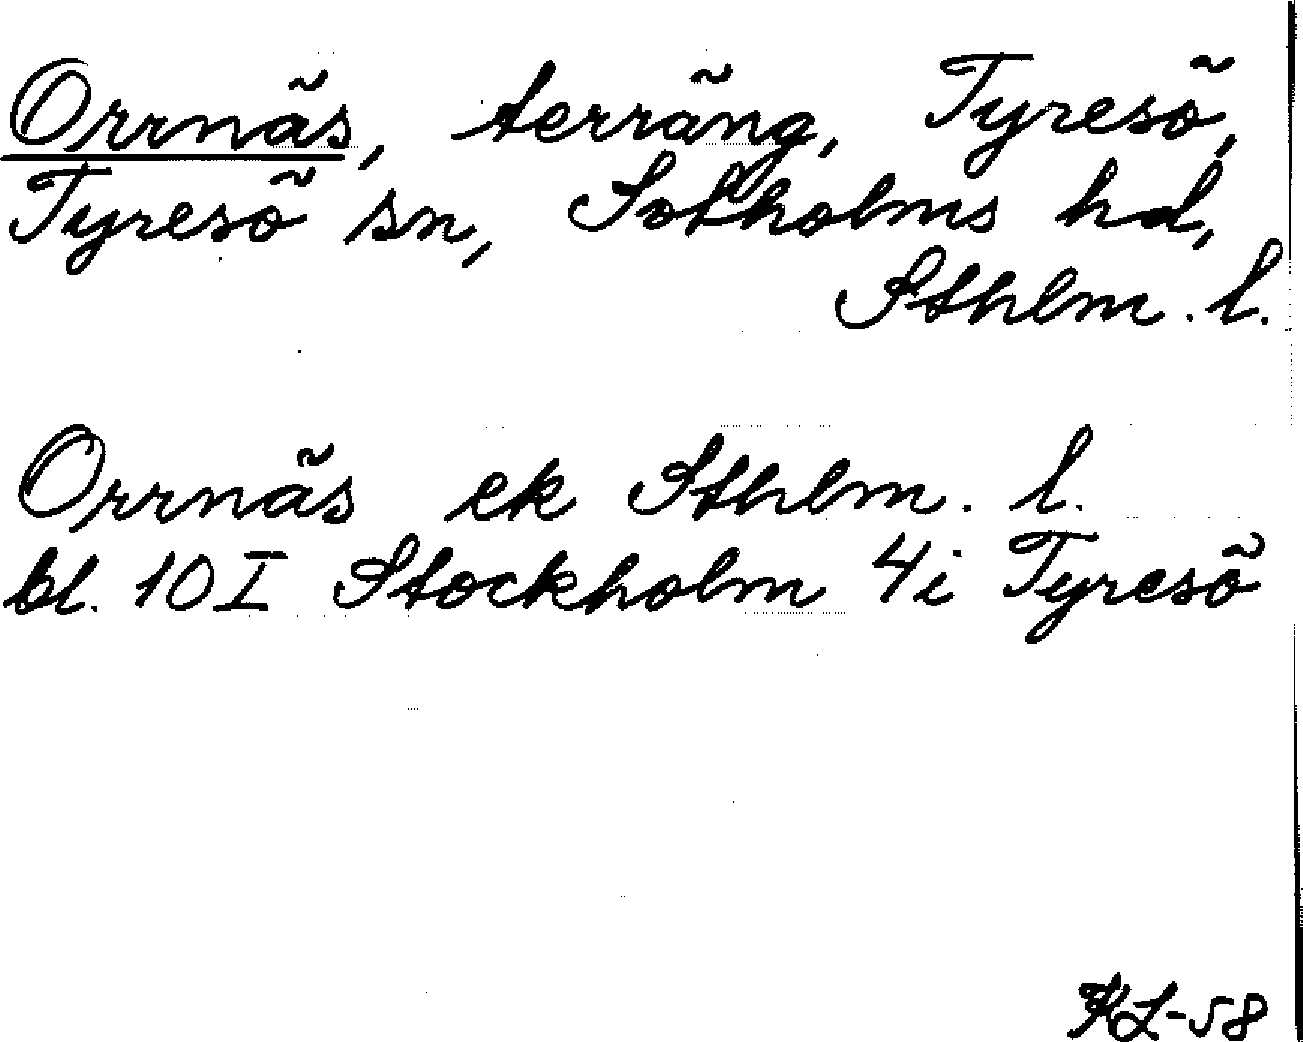 Orrnäs, terräng, Tyresö,
Tyresö sn, Sotholms hd,
Sthlm. l.
Orrnäs ek Sthlm. l.
bl. 10 I Stockholm 4i Tyresö
KL-58